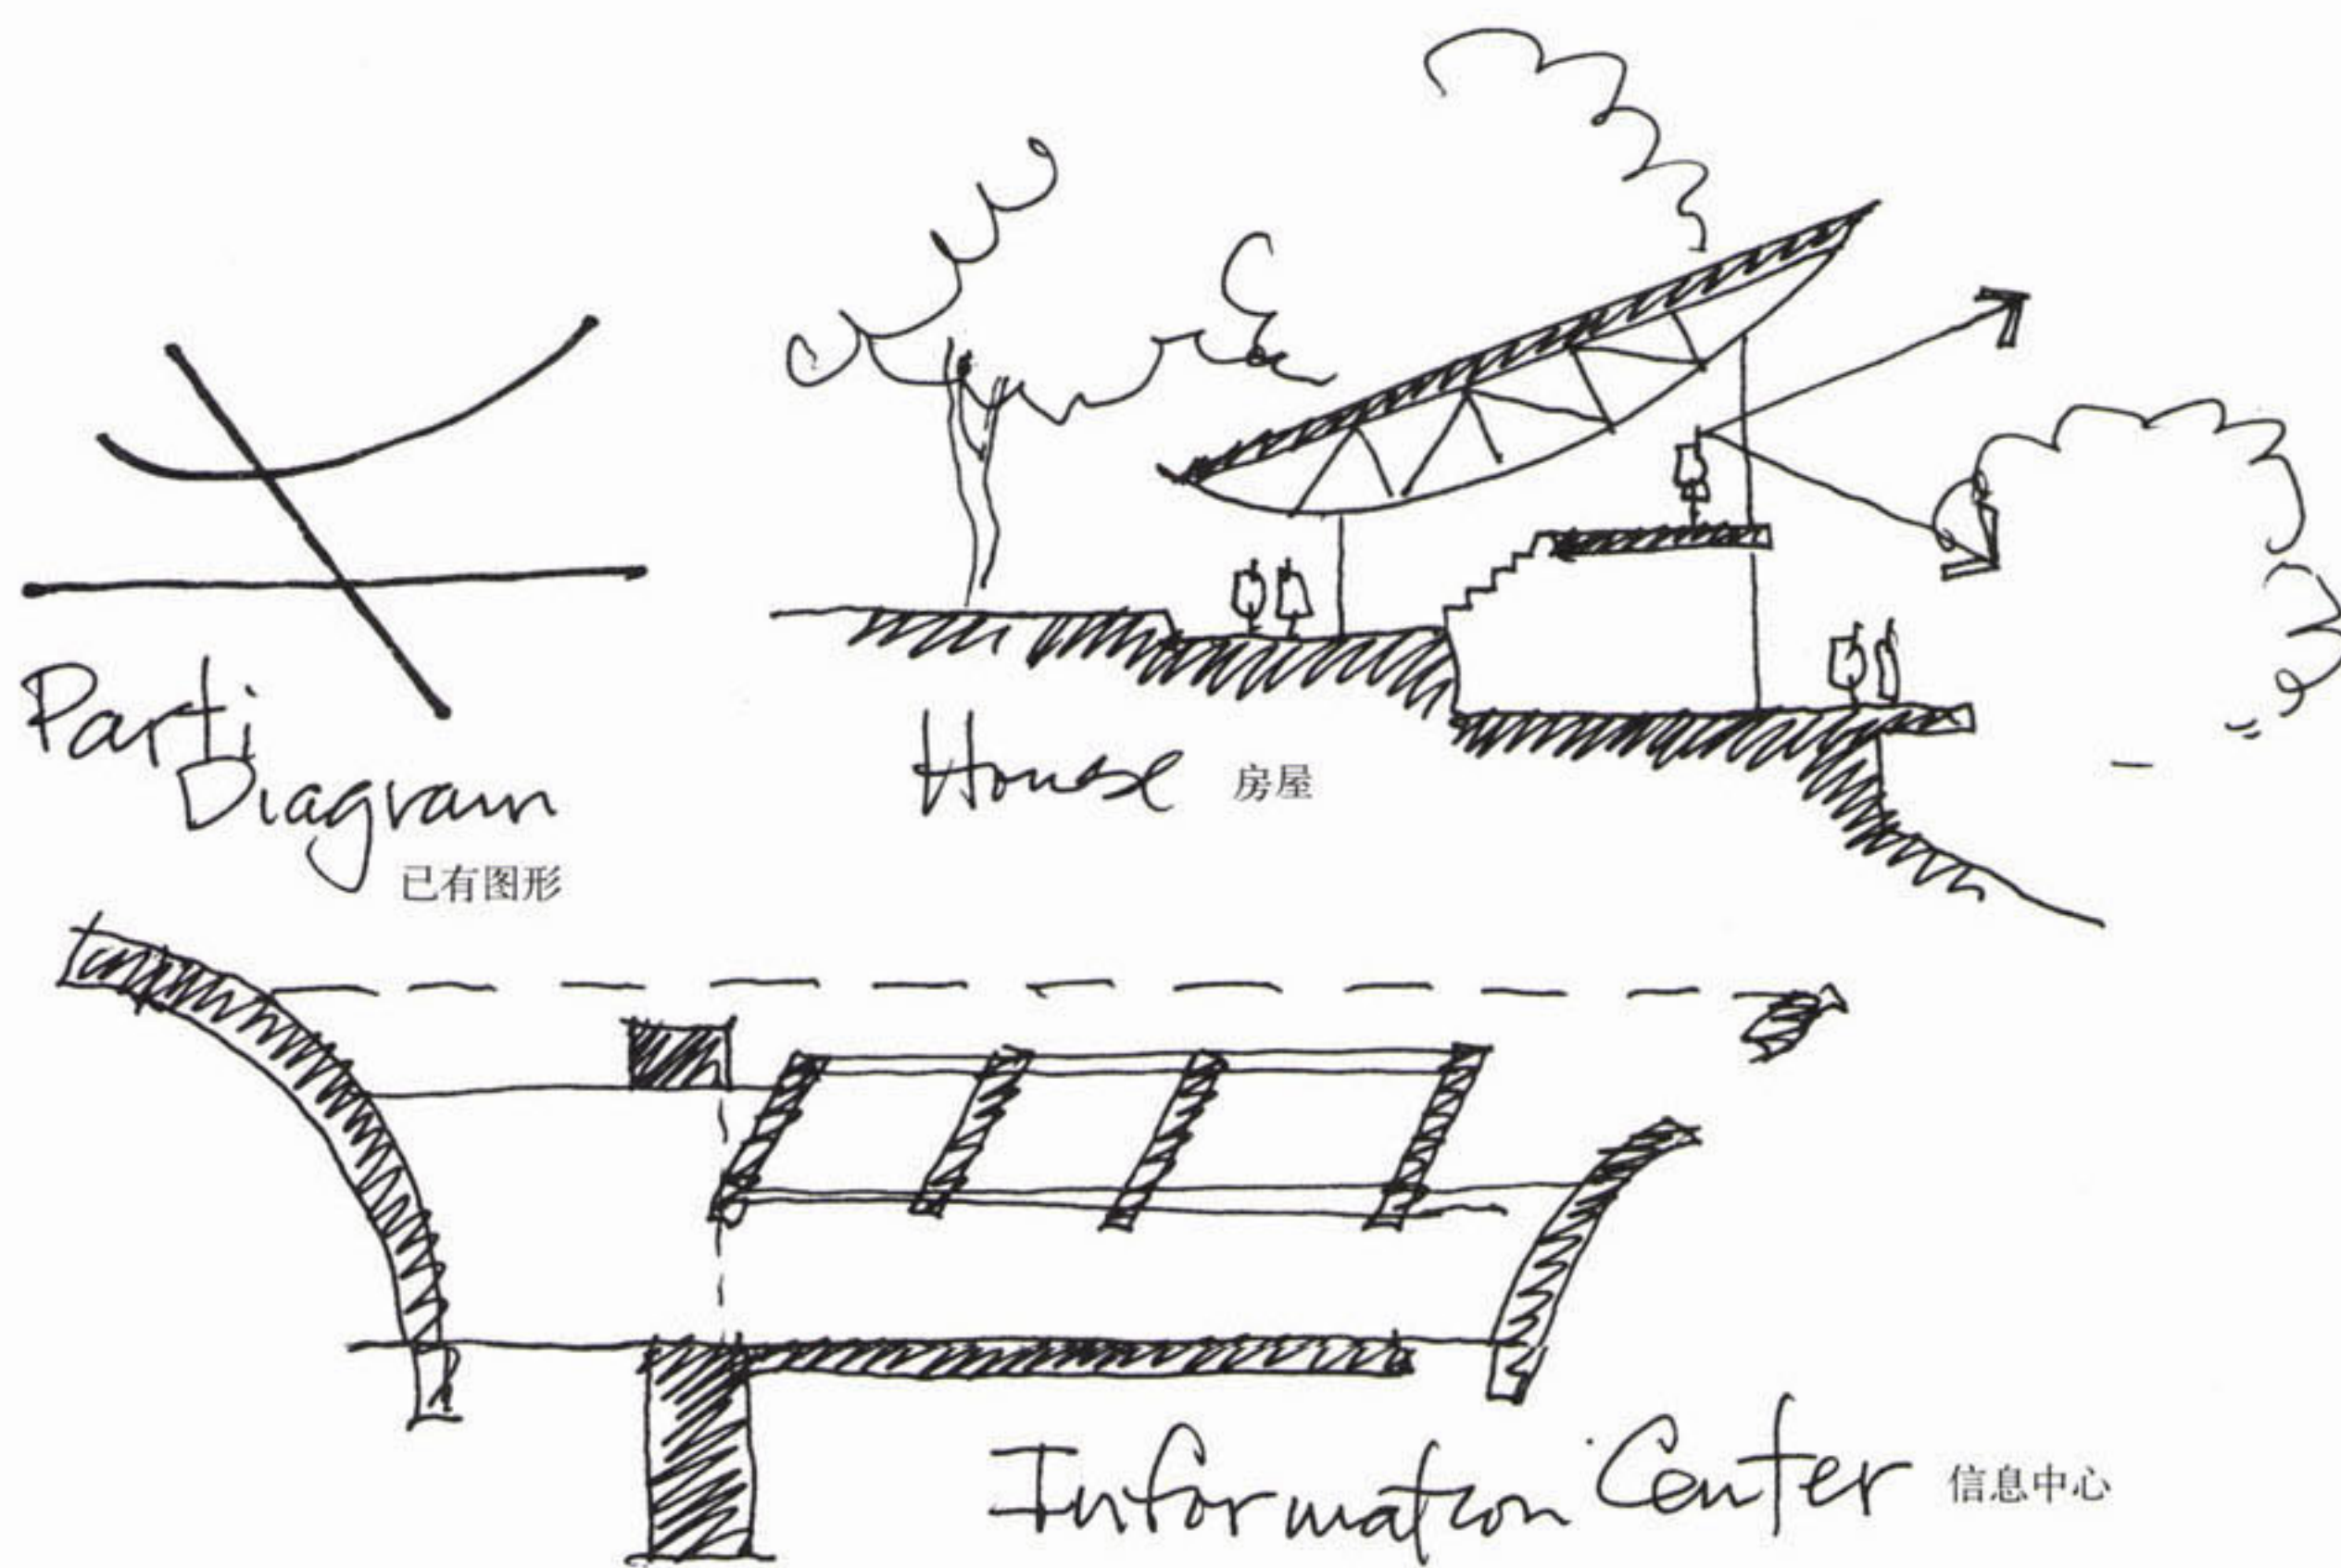 Parti
Diagram
已有图形
House 房屋
Information Center 信息中心